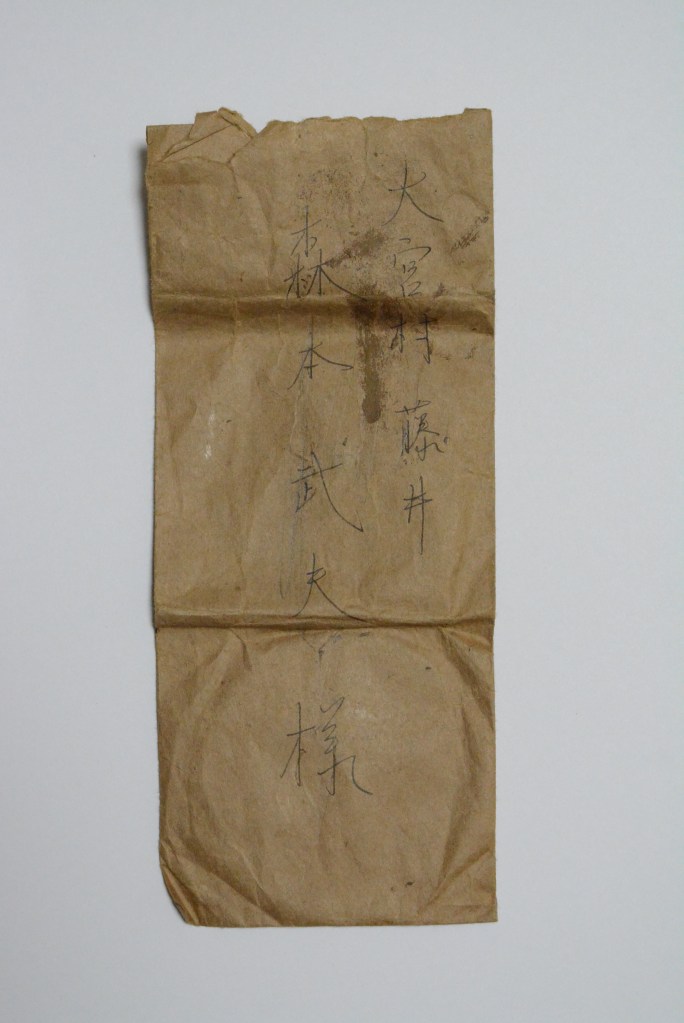 大宮村 藤井
森本武夫様